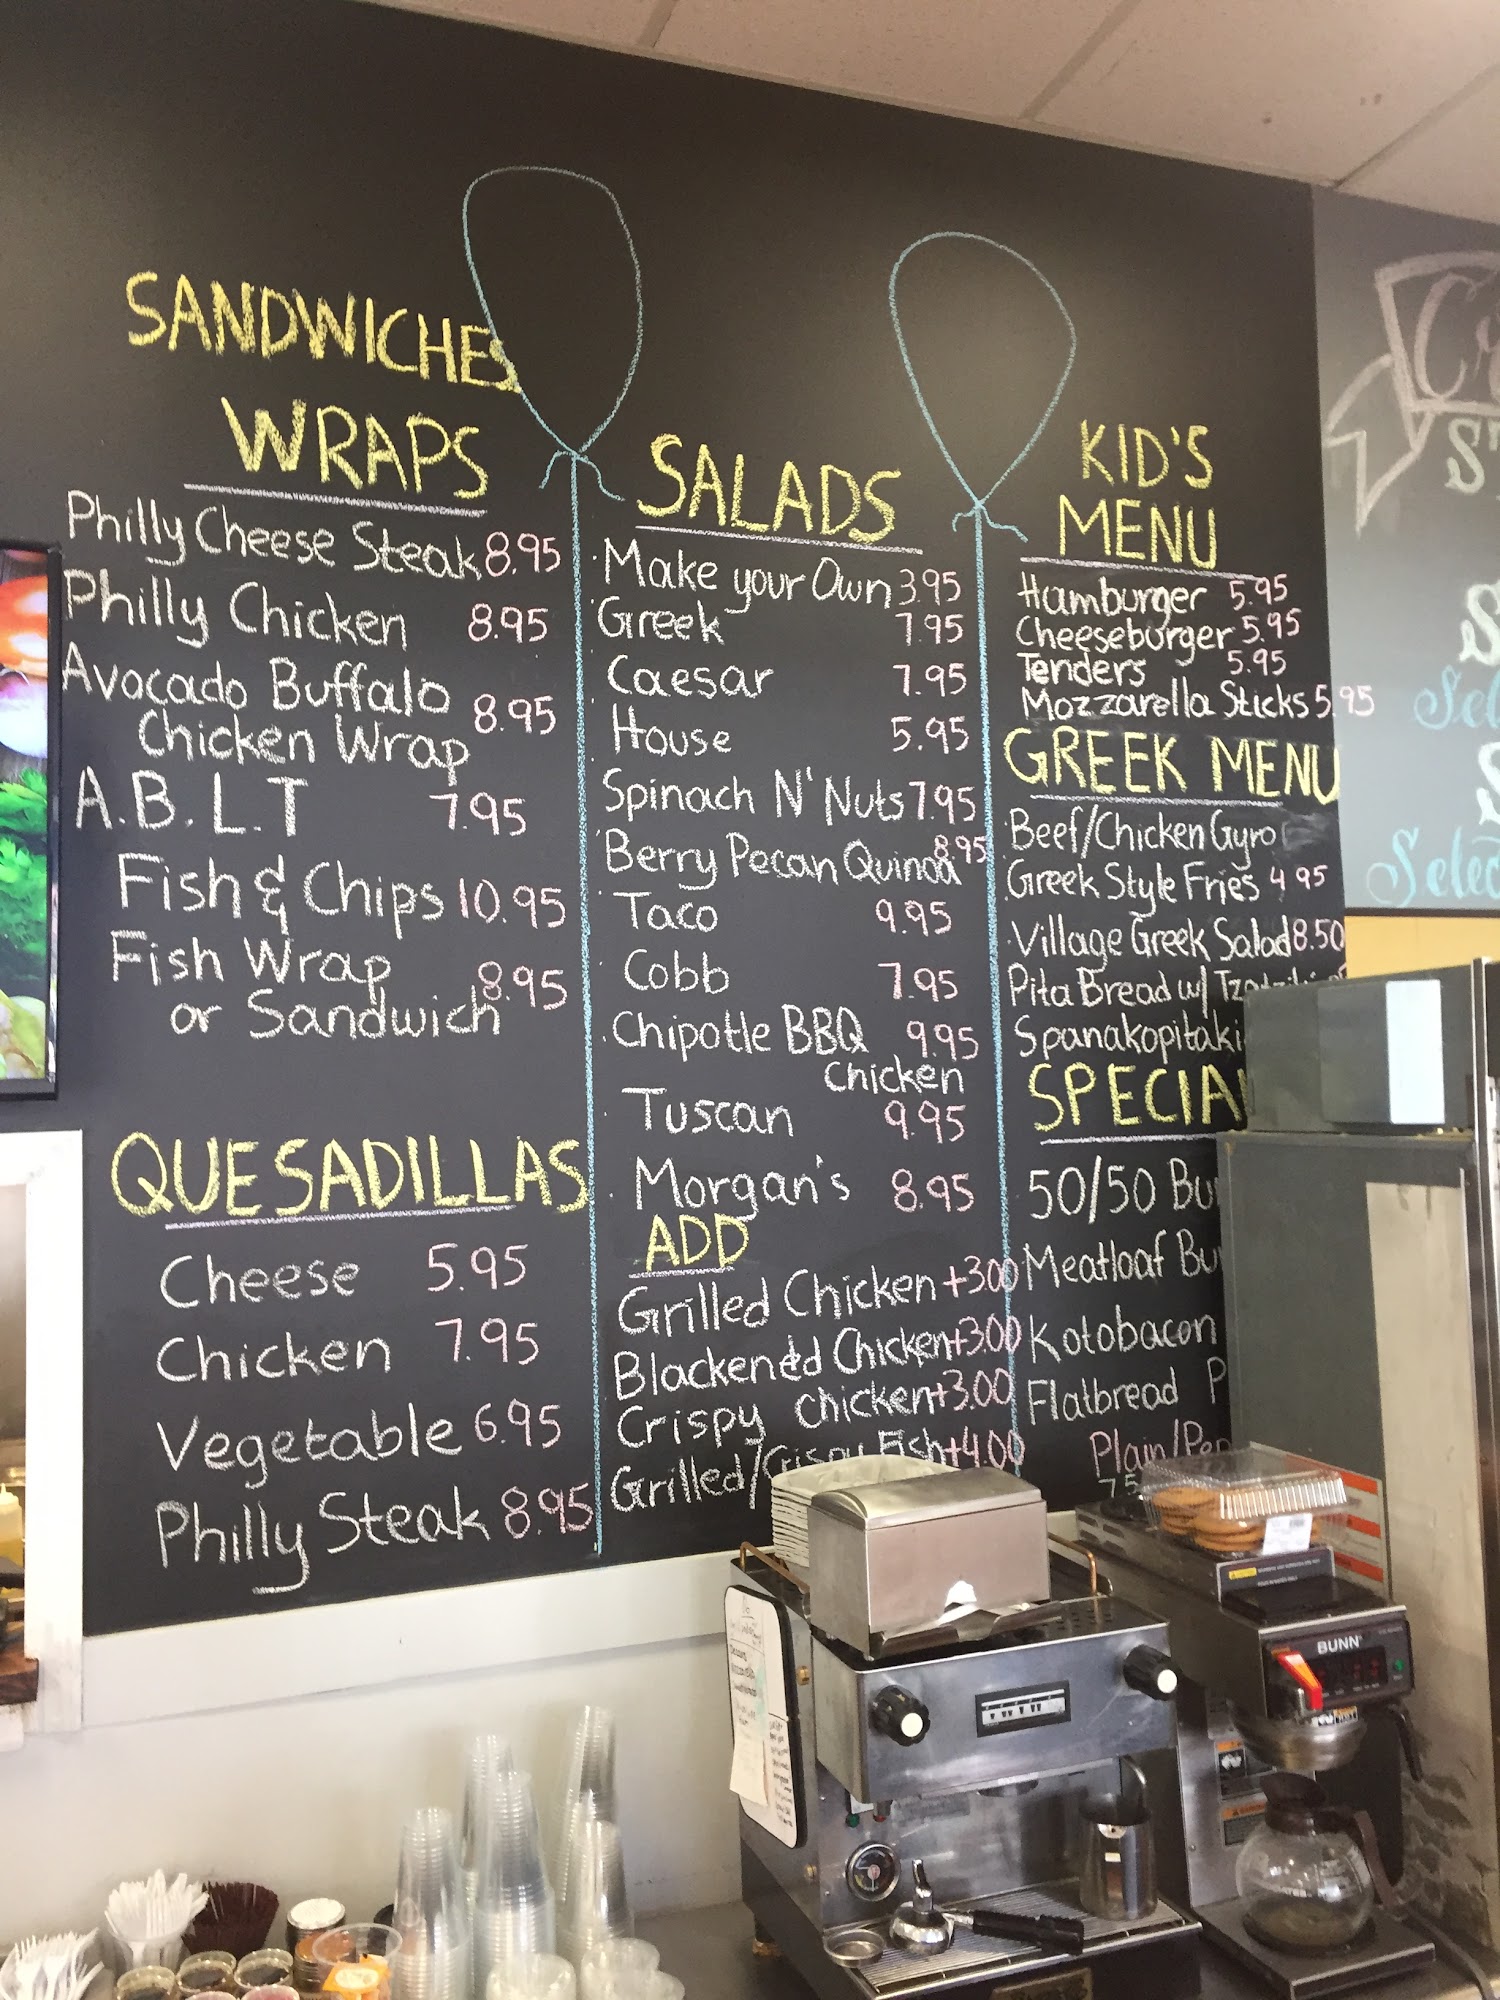 SANDWICHES
WRAPS
Philly Cheese Steak 8.95
Philly Chicken 8.95
Avocado Buffalo
Chicken Wrap 8.95
A.B.L.T 7.95
Fish & Chips 10.95
Fish Wrap
or Sandwich 8.95
QUESADILLAS
Cheese 5.95
Chicken 7.95
Vegetable 6.95
Philly Steak 8.95
SALADS
Make your Own 3.95
Greek 7.95
Caesar 7.95
House 5.95
Spinach N' Nuts 7.95
Berry Pecan Quinoa 8.95
Taco 9.95
Cobb 7.95
Chipotle BBQ 9.95
Chicken
Tuscan 9.95
Morgan's 8.95
ADD
Grilled Chicken +3.00
Blackened Chicken +3.00
Crispy chicken +3.00
Grilled/Crispy Fish +4.00
KID'S
MENU
Hamburger 5.95
Cheeseburger 5.95
Tenders 5.95
Mozzarella Sticks 5.95
GREEK MENU
Beef/Chicken Gyro
Greek Style Fries 4.95
Village Greek Salad 8.50
Pita Bread w/ Tzatziki
Spanakopitaki
SPECIA
50/50 Bu
Meatloaf Bu
Kotobacon
Flatbread P
Plain/Pep
7.5
BUNN